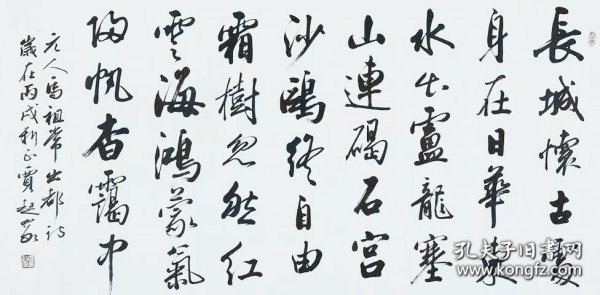 長城懷古處
身在日華東
水出盧龍塞
山連碣石宮
沙鷗終自由
霜樹忽然紅
雲海鴻蒙氣
歸帆杳靄中
元人馬祖常出都詩
歲在丙戌利正賈起家
孔夫子旧书网
www.kongfz.com